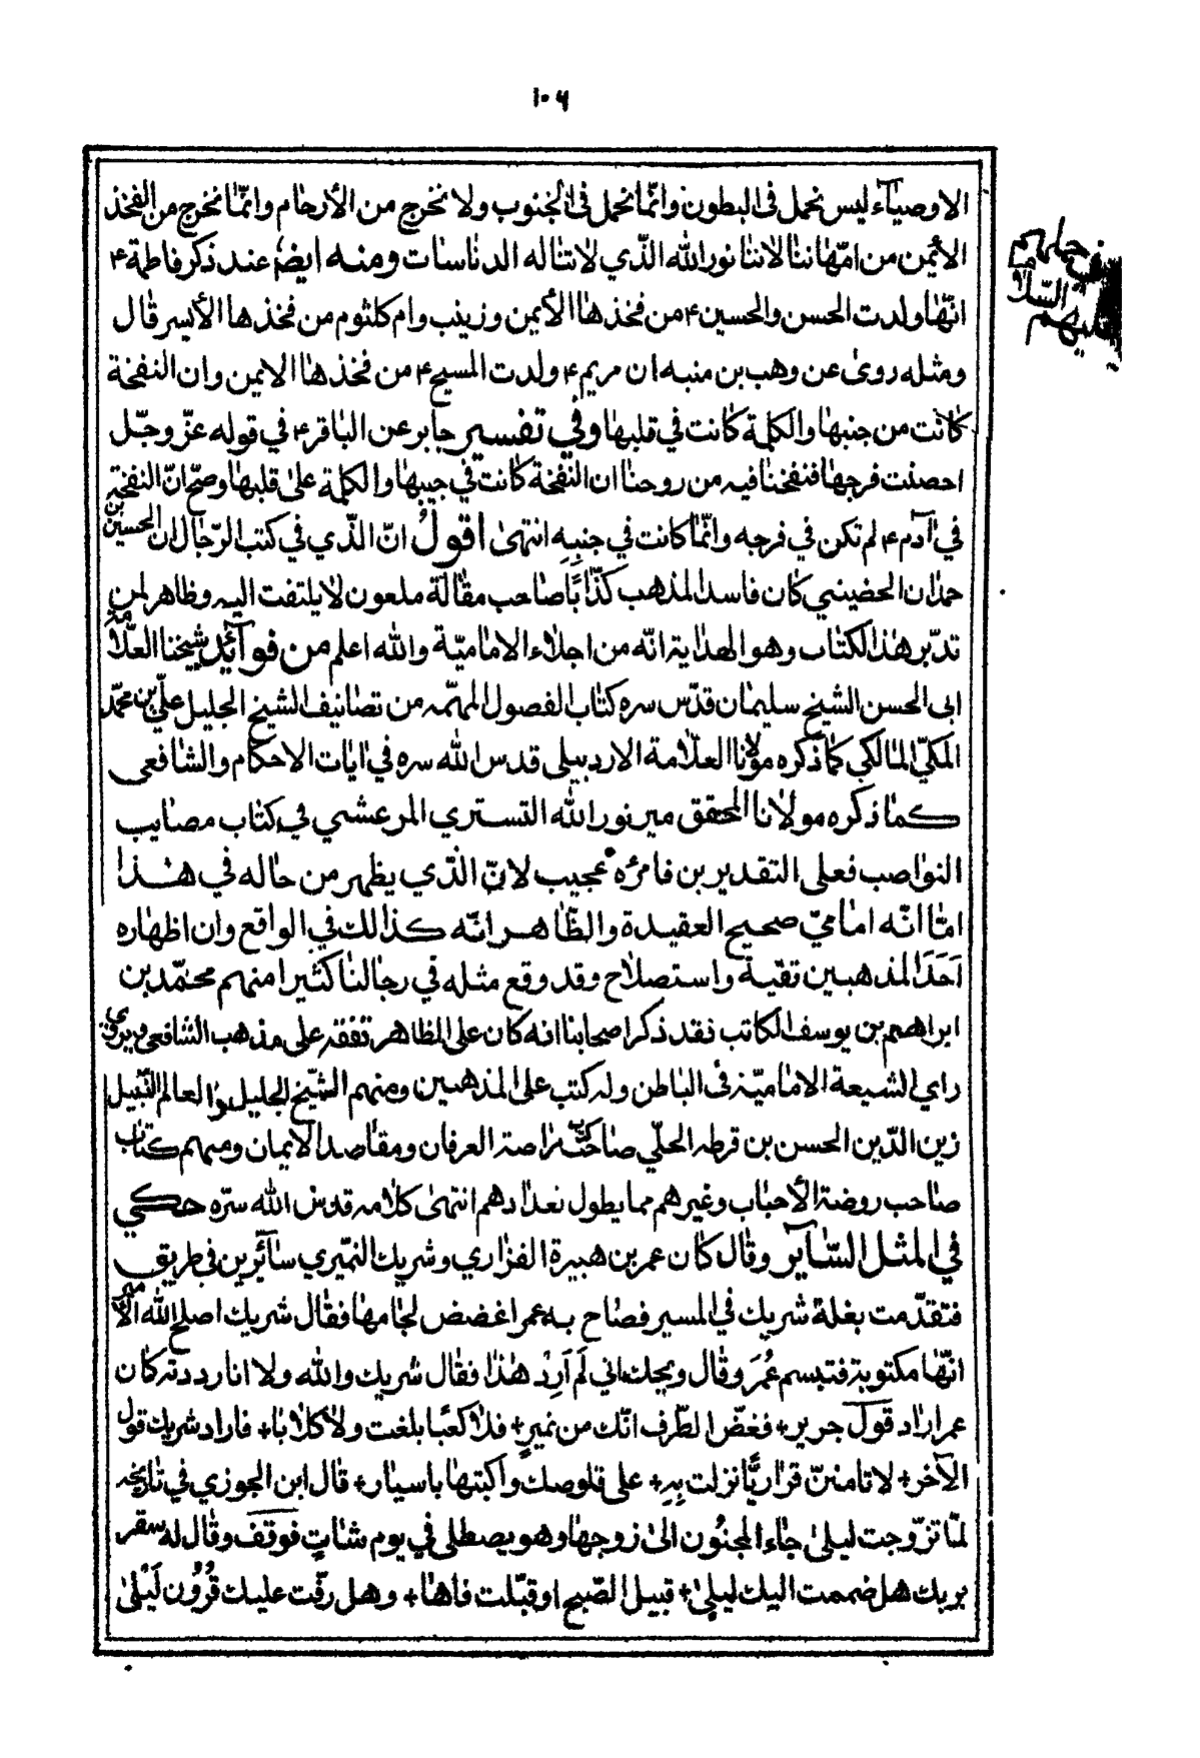 ١٠٦
الاوصيآء ليس نحمل فى البطون وانّما نحمل فى الجنوب ولا نخرج من الأرحام وانّما نخرج من الفخذ
الأيمن من امّهاتنا لاننا نور الله الّذي لا تناله الدناسات ومنه ايضم عند ذكر فاطمة ٤
انّها ولدت الحسن والحسين ٤ من فخذها الأيمن وزينب وام كلثوم من فخذها الأيسر قال
ومثله روى عن وهب بن منبه ان مريم ٤ ولدت المسيح ٤ من فخذها الايمن وان النفخة
كانت من جنبها والكلمة كانت في قلبها وفي تفسير جابر عن الباقر ٤ في قوله عزّ وجلّ
احصنت فرجها فنفخنا فيه من روحنا ان النفخة كانت في جيبها والكلمة على قلبها وصحّ انّ النفخة
في آدم ٤ لم تكن في فرجه وانّما كانت في جنبِهِ انتهى اقول انّ الّذي في كتب الرّجال ان الحسين بن
حمدان الحضيني كان فاسد المذهب كذّابًا صاحب مقالة ملعون لا يلتفت اليه وظاهر لمن
تدبّر هذا الكتاب وهو الهداية انّه من اجلاء الاماميّة والله اعلم من فوآئد شيخنا العلّامة
ابى الحسن الشيخ سليمان قدّس سره كتاب الفصول المهمّه من تصانيف الشيخ الجليل علىّ بن محمّد
المكيّ المالكي كما ذكره مولانا العلّامة الاردبيلى قدس الله سره في ايات الاحكام والشافعى
كما ذكره مولانا المحقق مير نور الله التستري المرعشي في كتاب مصايب
النواصب فعلى التقديرين فامره عجيب لانّ الّذي يظهر من حاله في هذا
امّا انّه امامي صحيح العقيدة والظّاهر انّه كذالك في الواقع وان اظهاره
اَحَدَ المذهبين تقية واستصلاح وقد وقع مثله في رجالنا كثيرا منهم محمّد بن
ابراهيم بن يوسف الكاتب فقد ذكر اصحابنا انه كان على الظاهر تفقه على مذهب الشافعى ويرى
راي الشيعة الاماميّة فى الباطن وله كتب على المذهبين ومنهم الشّيخ الجليل والعالم النّبيل
زين الدّين الحسن بن قرطه الحلّي صاحب مراصد العرفان ومقاصد الايمان ومنهم كتاب
صاحب روضة الأحباب وغيرهم مما يطول تعدادهم انتهى كلامه قدس الله سرّه حكي
في المثل السّاير وقال كان عمر بن هبيرة الفزاري وشريك النميري سآئرين في طريق
فتقدّمت بغلة شريك في المسير فصاح به عمر اغضض لجامها فقال شريك اصلح الله الأمير
انّها مكتوبة فتبسم عُمَر وقال ويحك انى لَم اَرِدْ هذا فقال شريك والله ولا انا رددته كان
عمر اراد قول جرير+ فغضّ الطّرف انّك من نميرٍ+ فلا كعبًا بلغت ولا كلابا+ فاراد شريك قول
الآخر+ لا تامننّ قراريًّا نزلت بِهِ+ على قلوصك واكتبها باسيار+ قال ابن الجوزي في تاريخه
لمّا تزوّجت ليلى جاء المجنُون الى زوجها وهو يصطلى في يوم شاتٍ فوقف وقال له شعر
بربك هل ضممت اليك ليلى+ قبيل الصّبح او قبّلت فاها+ وهل رفّت عليك قُرُون لَيْلى
في حملهم
عليهم السلام